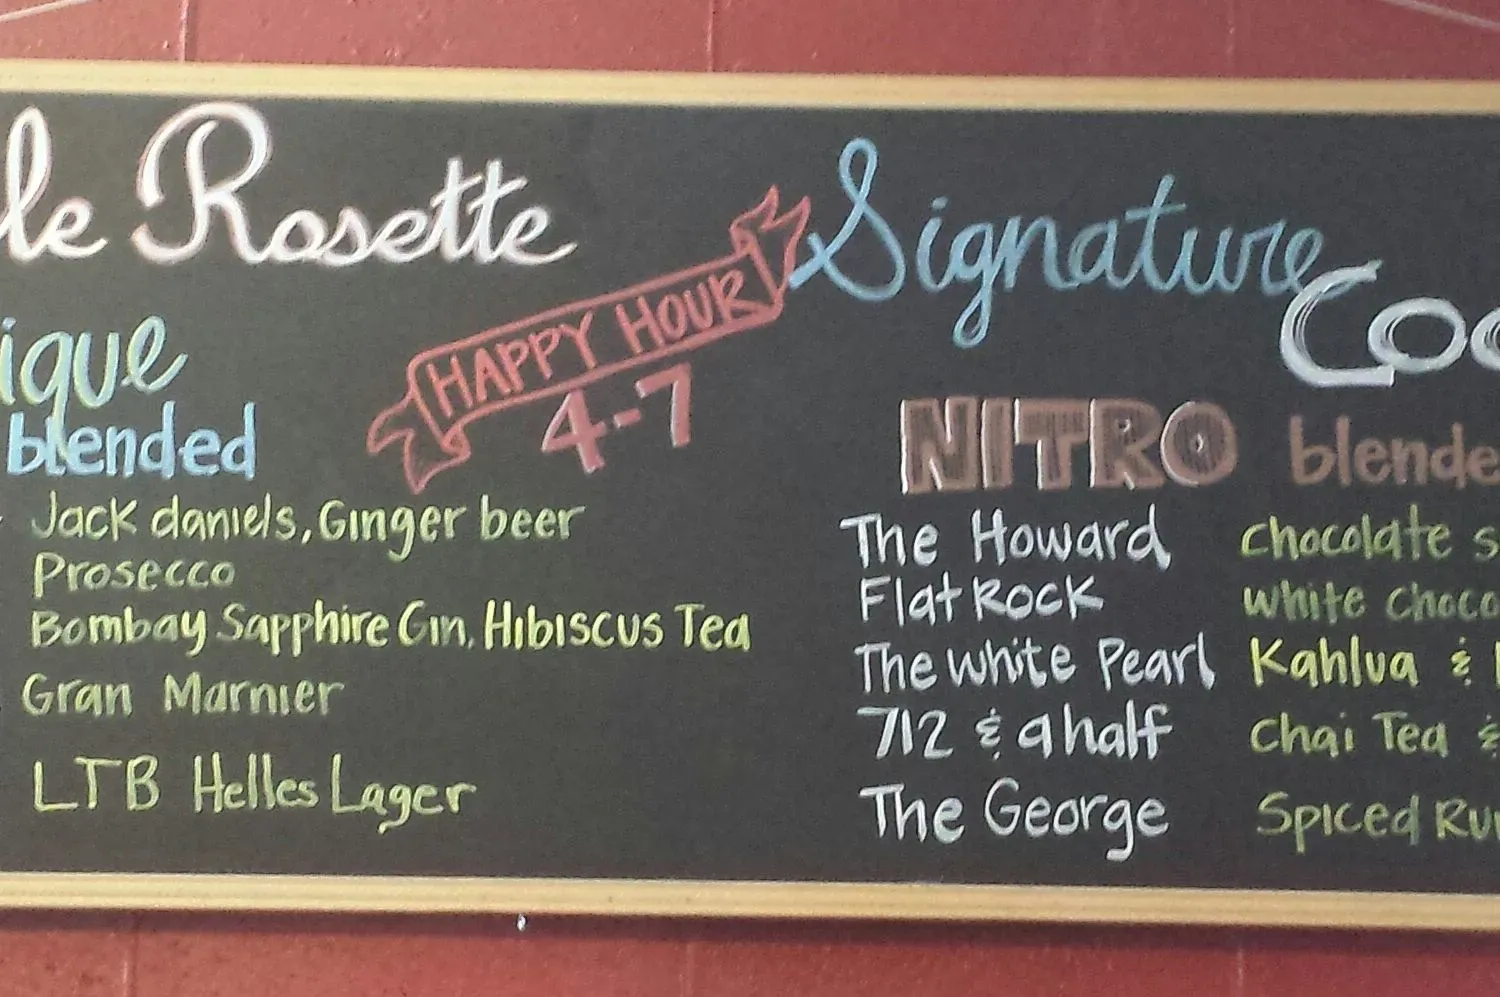 le Rosette
ique
blended
HAPPY HOUR
4-7
Jack daniels, Ginger beer
Prosecco
Bombay Sapphire Gin, Hibiscus Tea
Gran Marnier
LTB Helles Lager
Signature
Coc
NITRO blende
The Howard chocolate s
Flat Rock white choco
The white Pearl Kahlua &
712 & a half Chai Tea &
The George Spiced Ru